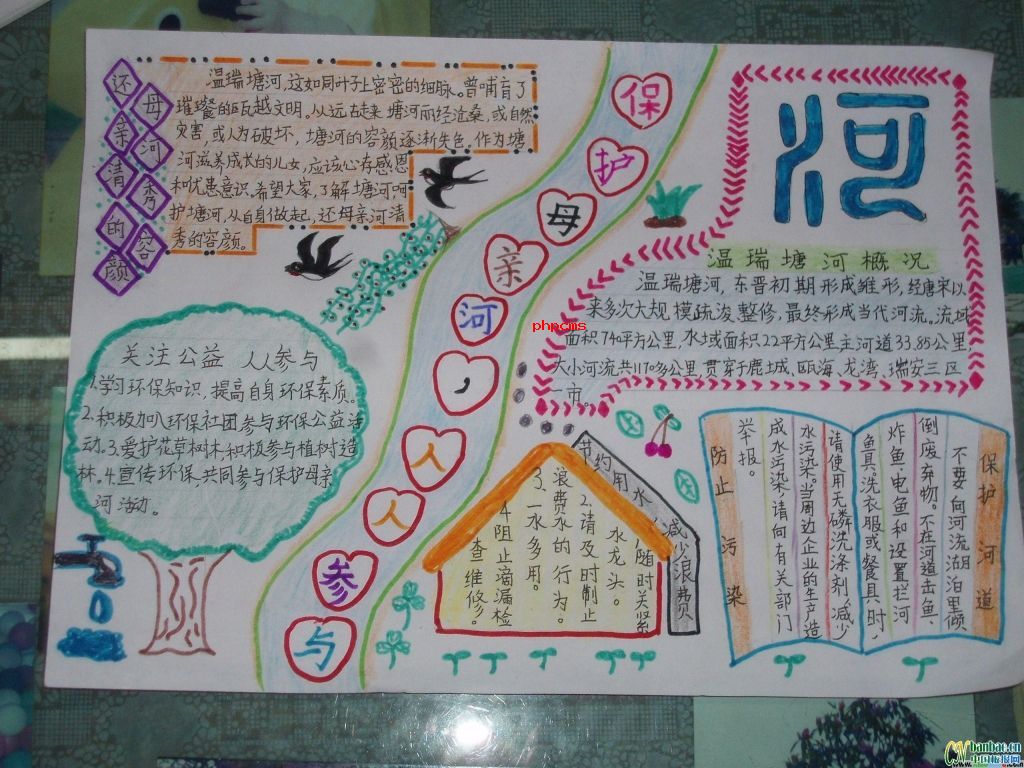 还母亲河清秀的容颜
温瑞塘河,这如同叶子上密密的细脉。曾哺育了
璀璨的瓯越文明。从远古走来,塘河历经沧桑,或自然
灾害,或人为破坏,塘河的容颜逐渐失色,作为塘
河滋养成长的儿女,应该心存感恩
和忧患意识。希望大家,了解塘河呵
护塘河,从自身做起,还母亲河清
秀的容颜。
保护母亲河,人人参与
河
温瑞塘河概况
温瑞塘河,东晋初期形成雏形,经唐宋以
来多次大规模疏浚整修,最终形成当代河流。流域
面积740平方公里,水域面积22平方公里主河道33.85公里,
大小河流共1170多公里,贯穿于鹿城、瓯海、龙湾、瑞安三区
一市。
phpcms
关注公益 人人参与
1.学习环保知识,提高自身环保素质。
2.积极加入环保社团参与环保公益活
动。3.爱护花草树木和积极参与植树造
林。4.宣传环保,共同参与保护母亲
河活动。
节约用水,减少浪费
1.随时关紧
水龙头。
2.请及时制止
浪费水的行为。
3.一水多用。
4.阻止滴漏检
查维修。
保护河道
不要向河流湖泊里倾
倒废弃物。不在河道击鱼、
炸鱼、电鱼和设置拦河
鱼具。洗衣服或餐具时,
请使用无磷洗涤剂,减少
水污染。当周边企业的生产造
成水污染,请向有关部门
举报。
防止污染
banbao.cn
中国板报网